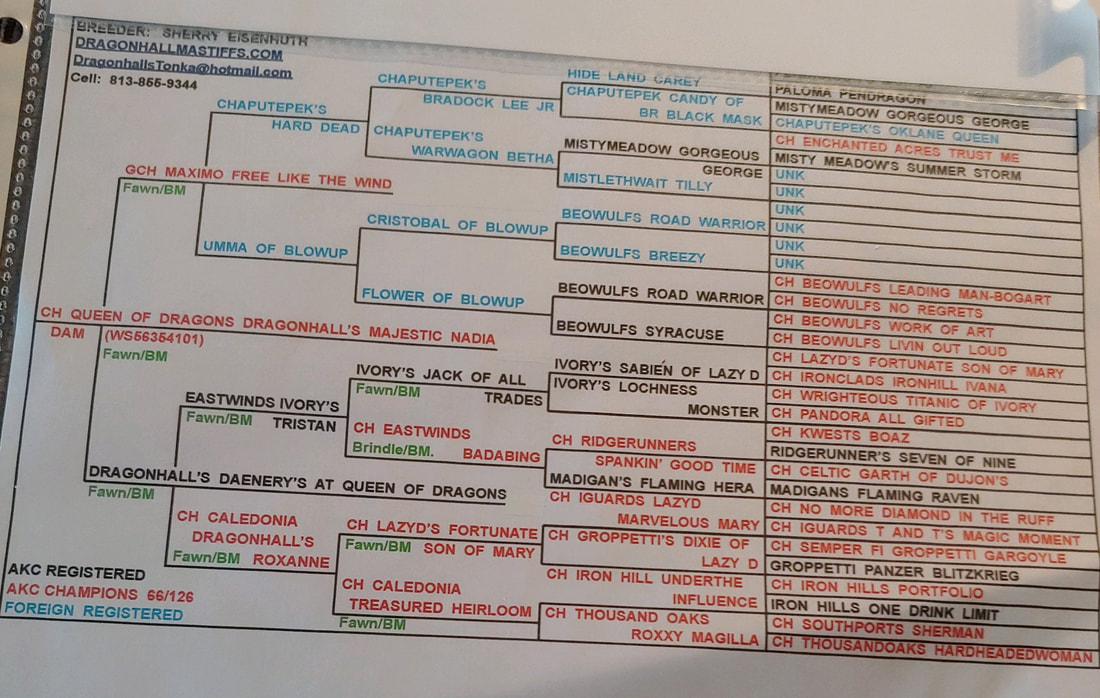 BREEDER: SHERRY EISENHUTH
DRAGONHALLMASTIFFS.COM
DragonhallsTonka@hotmail.com
Cell: 813-855-9344
CH QUEEN OF DRAGONS DRAGONHALL'S MAJESTIC NADIA
DAM (WS56354101)
Fawn/BM
GCH MAXIMO FREE LIKE THE WIND
Fawn/BM
DRAGONHALL'S DAENERY'S AT QUEEN OF DRAGONS
Fawn/BM
CHAPUTEPEK'S
HARD DEAD
UMMA OF BLOWUP
EASTWINDS IVORY'S
Fawn/BM TRISTAN
CH CALEDONIA
DRAGONHALL'S
Fawn/BM ROXANNE
CHAPUTEPEK'S
BRADOCK LEE JR
CHAPUTEPEK'S
WARWAGON BETHA
CRISTOBAL OF BLOWUP
FLOWER OF BLOWUP
IVORY'S JACK OF ALL
Fawn/BM TRADES
CH EASTWINDS
Brindle/BM. BADABING
CH LAZYD'S FORTUNATE
Fawn/BM SON OF MARY
CH CALEDONIA
TREASURED HEIRLOOM
Fawn/BM
HIDE LAND CAREY
CHAPUTEPEK CANDY OF
BR BLACK MASK
MISTYMEADOW GORGEOUS
GEORGE
MISTLETHWAIT TILLY
BEOWULFS ROAD WARRIOR
BEOWULFS BREEZY
BEOWULFS ROAD WARRIOR
BEOWULFS SYRACUSE
IVORY'S SABIEN OF LAZY D
IVORY'S LOCHNESS
MONSTER
CH RIDGERUNNERS
SPANKIN' GOOD TIME
MADIGAN'S FLAMING HERA
CH IGUARDS LAZYD
MARVELOUS MARY
CH GROPPETTI'S DIXIE OF
LAZY D
CH IRON HILL UNDERTHE
INFLUENCE
CH THOUSAND OAKS
ROXXY MAGILLA
PALOMA PENDRAGON
MISTYMEADOW GORGEOUS GEORGE
CHAPUTEPEK'S OKLANE QUEEN
CH ENCHANTED ACRES TRUST ME
MISTY MEADOW'S SUMMER STORM
UNK
UNK
UNK
UNK
UNK
UNK
CH BEOWULFS LEADING MAN-BOGART
CH BEOWULFS NO REGRETS
CH BEOWULFS WORK OF ART
CH BEOWULFS LIVIN OUT LOUD
CH LAZYD'S FORTUNATE SON OF MARY
CH IRONCLADS IRONHILL IVANA
CH WRIGHTEOUS TITANIC OF IVORY
CH PANDORA ALL GIFTED
CH KWESTS BOAZ
RIDGERUNNER'S SEVEN OF NINE
CH CELTIC GARTH OF DUJON'S
MADIGANS FLAMING RAVEN
CH NO MORE DIAMOND IN THE RUFF
CH IGUARDS T AND T'S MAGIC MOMENT
CH SEMPER FI GROPPETTI GARGOYLE
GROPPETTI PANZER BLITZKRIEG
CH IRON HILLS PORTFOLIO
IRON HILLS ONE DRINK LIMIT
CH SOUTHPORTS SHERMAN
CH THOUSANDOAKS HARDHEADEDWOMAN
AKC REGISTERED
AKC CHAMPIONS 66/126
FOREIGN REGISTERED